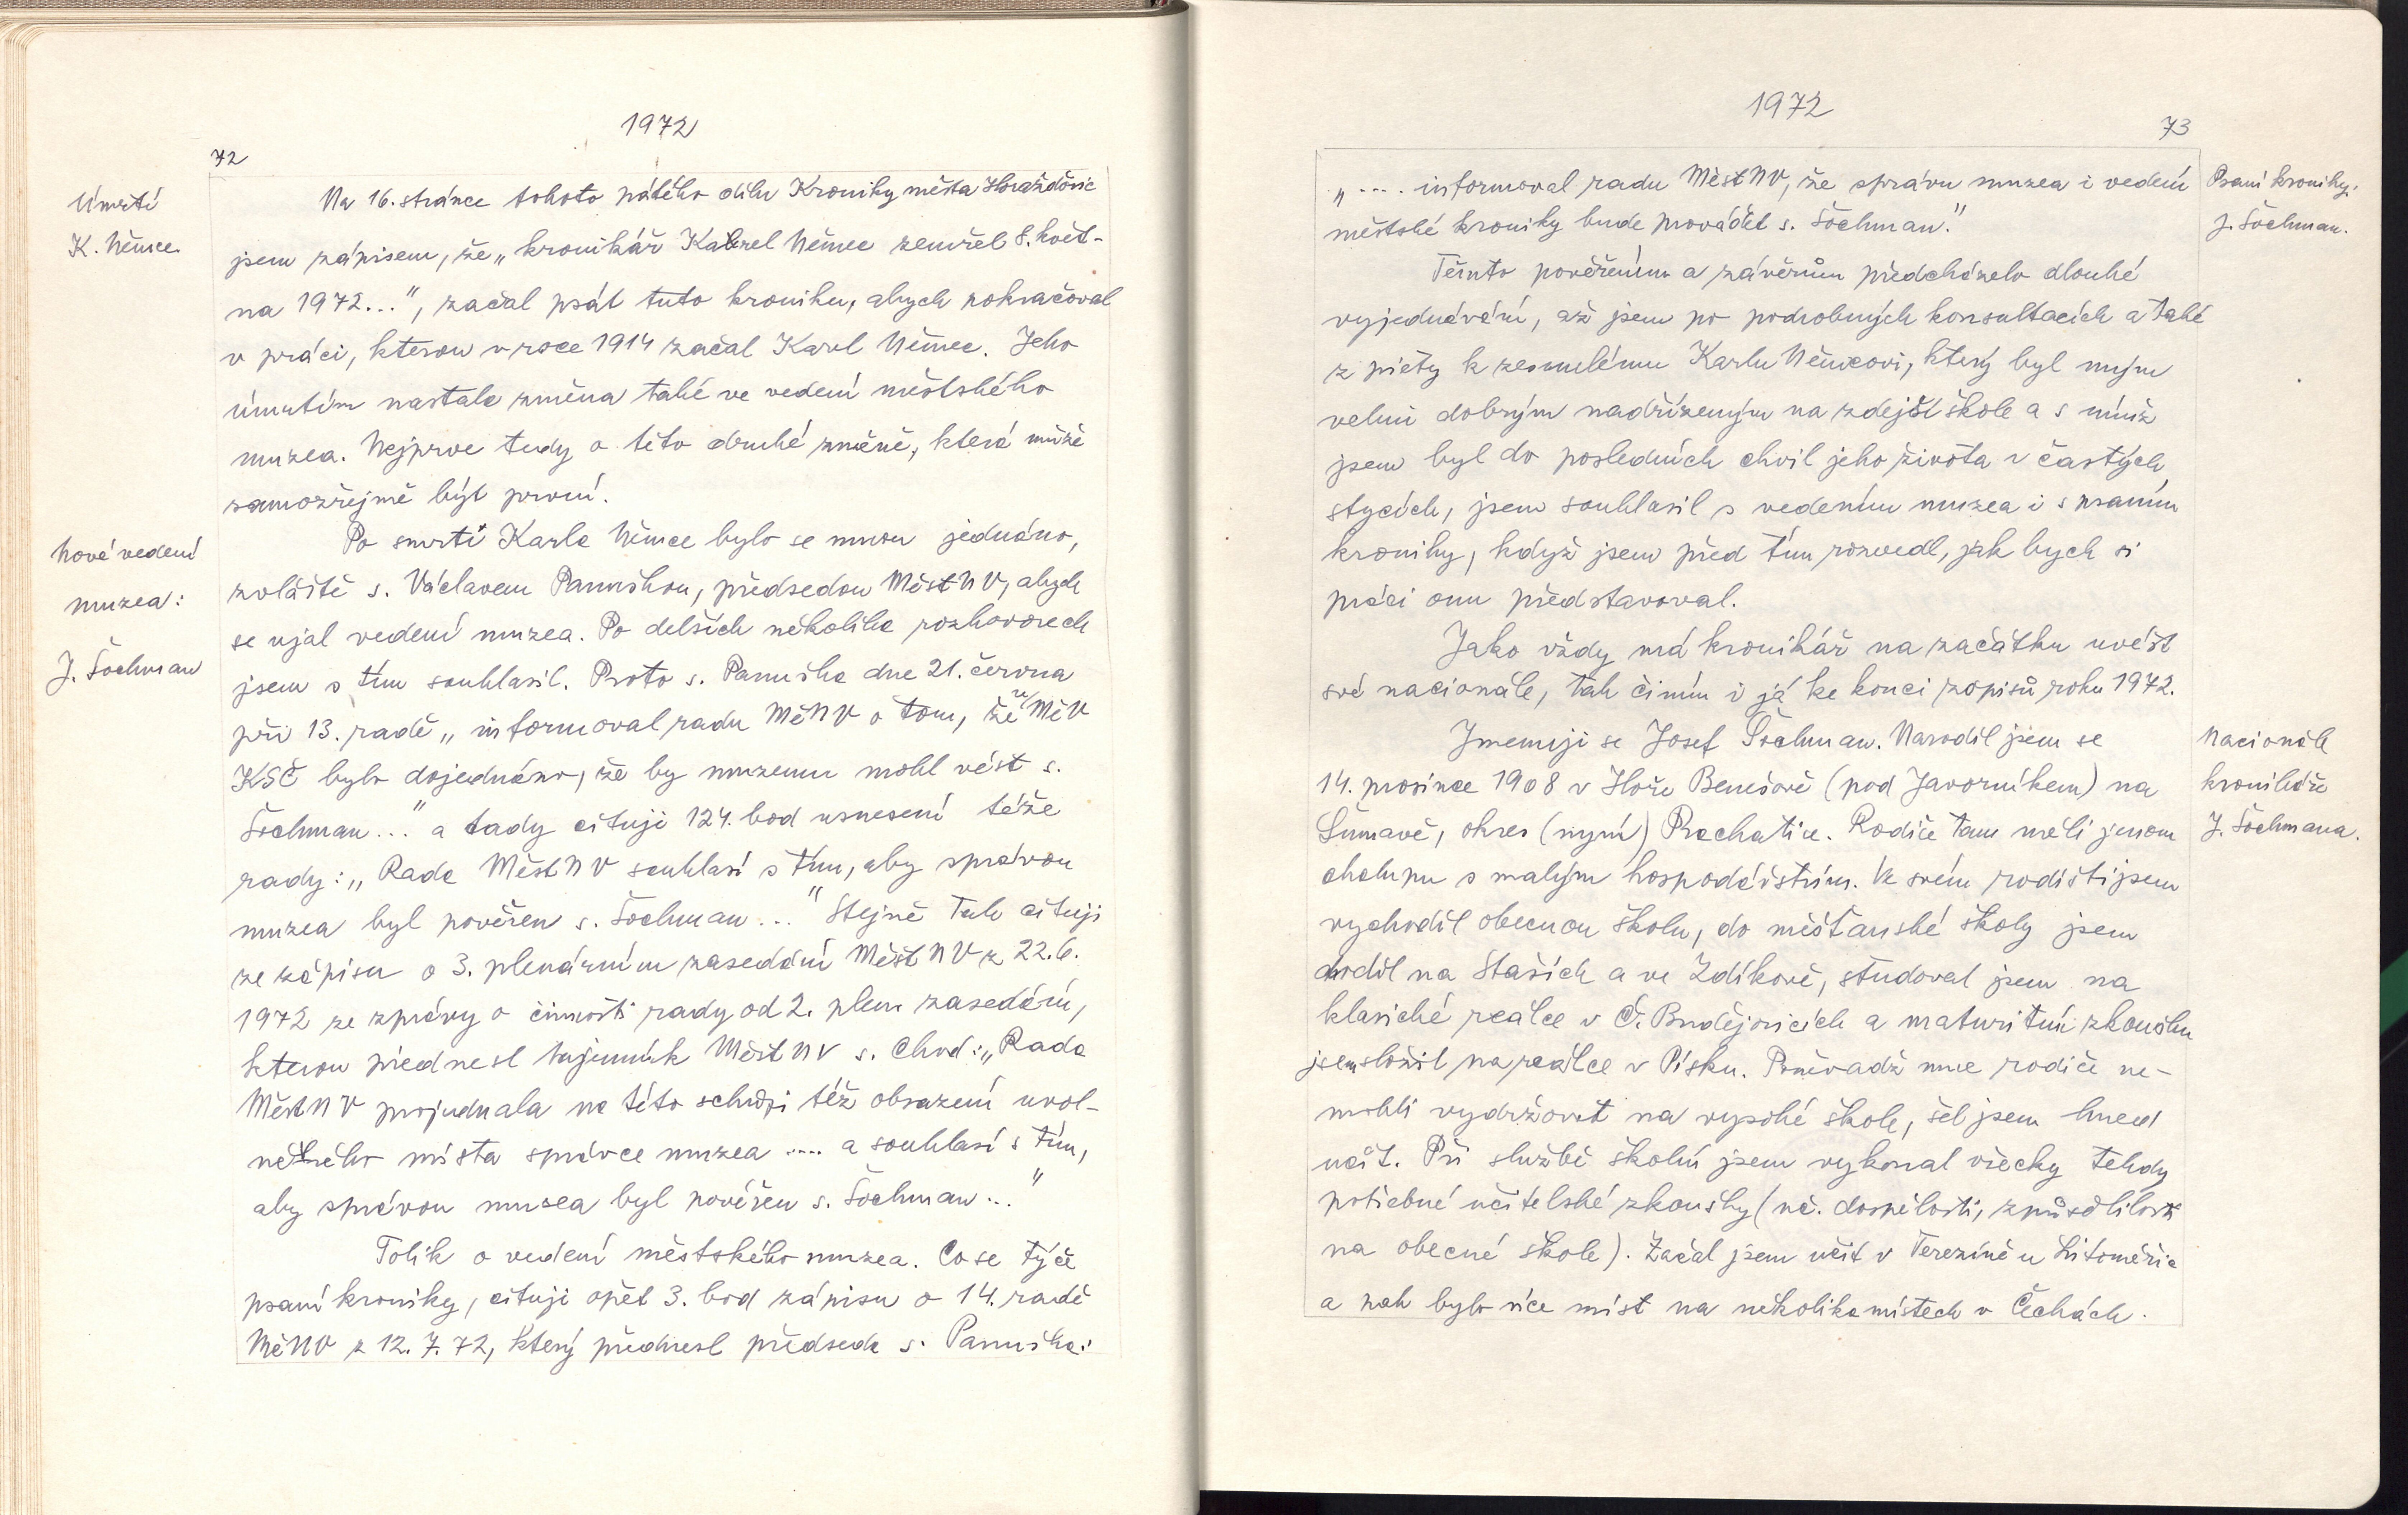 1972
72
Úmrtí
K. Němce.
Na 16. stránce tohoto pátého dílu Kroniky města Horažďovic
jsem zápisem, že „kronikář Karel Němec zemřel 8. květ-
na 1972...", začal psát tuto kroniku, abych pokračoval
v práci, kterou v roce 1914 začal Karel Němec. Jeho
úmrtím nastala změna také ve vedení městského
muzea. Nejprve tedy o této druhé změně, která může
samozřejmě být první.
Nové vedení
muzea:
J. Šochman
Po smrti Karla Němce bylo se mnou jednáno,
zvláště s. Václavem Panuškou, předsedou MěstNV, abych
se ujal vedení muzea. Po delších několika rozhovorech
jsem s tím souhlasil. Proto s. Panuška dne 21. června
při 13. radě „informoval radu MěNV o tom, že "MěV
KSČ bylo dojednáno, že by muzeum mohl vést s.
Šochman..." a tady cituji 124. bod usnesení téže
rady: „Rada MěstNV souhlasí s tím, aby správou
muzea byl pověřen s. Šochman..." Stejně tak cituji
ze zápisu o 3. plenárním zasedání MěstNV z 22.6.
1972 ze zprávy o činnosti rady od 2. plen. zasedání,
kterou přednesl tajemník MěstNV s. Chod: „Rada
MěstNV projednala na této schůzi též obsazení uvol-
něného místa správce muzea .... a souhlasí s tím,
aby správou muzea byl pověřen s. Šochman..."
Tolik o vedení městského muzea. Co se týče
psaní kroniky, cituji opět 3. bod zápisu o 14. radě
MěNV z 12. 7. 72, který přednesl předseda s. Panuška:
1972
73
„.... informoval radu MěstNV, že správu muzea i vedení
městské kroniky bude provádět s. Šochman."
Psaní kroniky:
J. Šochman.
Těmto pověřením a závěrům předcházelo dlouhé
vyjednávání, až jsem po podrobných konsultacích a také
z piety k zesnulému Karlu Němcovi, který byl mým
velmi dobrým nadřízeným na zdejší škole a s nímž
jsem byl do posledních chvil jeho života v častých
stycích, jsem souhlasil s vedením muzea i s psaním
kroniky, když jsem před tím rozvedl, jak bych si
práci onu představoval.
Jako vždy má kronikář na začátku uvést
své nacionále, tak činím i já ke konci zápisů roku 1972.
Nacionále
kronikáře
J. Šochmana.
Jmenuji se Josef Šochman. Narodil jsem se
14. prosince 1908 v Hoře Benešově (pod Javorníkem) na
Šumavě, okres (nyní) Prachatice. Rodiče tam měli jenom
chalupu s malým hospodářstvím. Ve svém rodišti jsem
vychodil obecnou školu, do měšťanské školy jsem
chodil na Staších a ve Zdíkově, studoval jsem na
klasické reálce v Č. Budějovicích a maturitní zkoušku
jsem složil na reálce v Písku. Poněvadž mne rodiče ne-
mohli vydržovat na vysoké škole, šel jsem hned
učit. Při službě školní jsem vykonal všecky tehdy
potřebné učitelské zkoušky (uč. dospělosti, způsobilosti
na obecné škole). Začal jsem učit v Terezíně u Litoměřic
a pak bylo více míst na několika místech v Čechách.